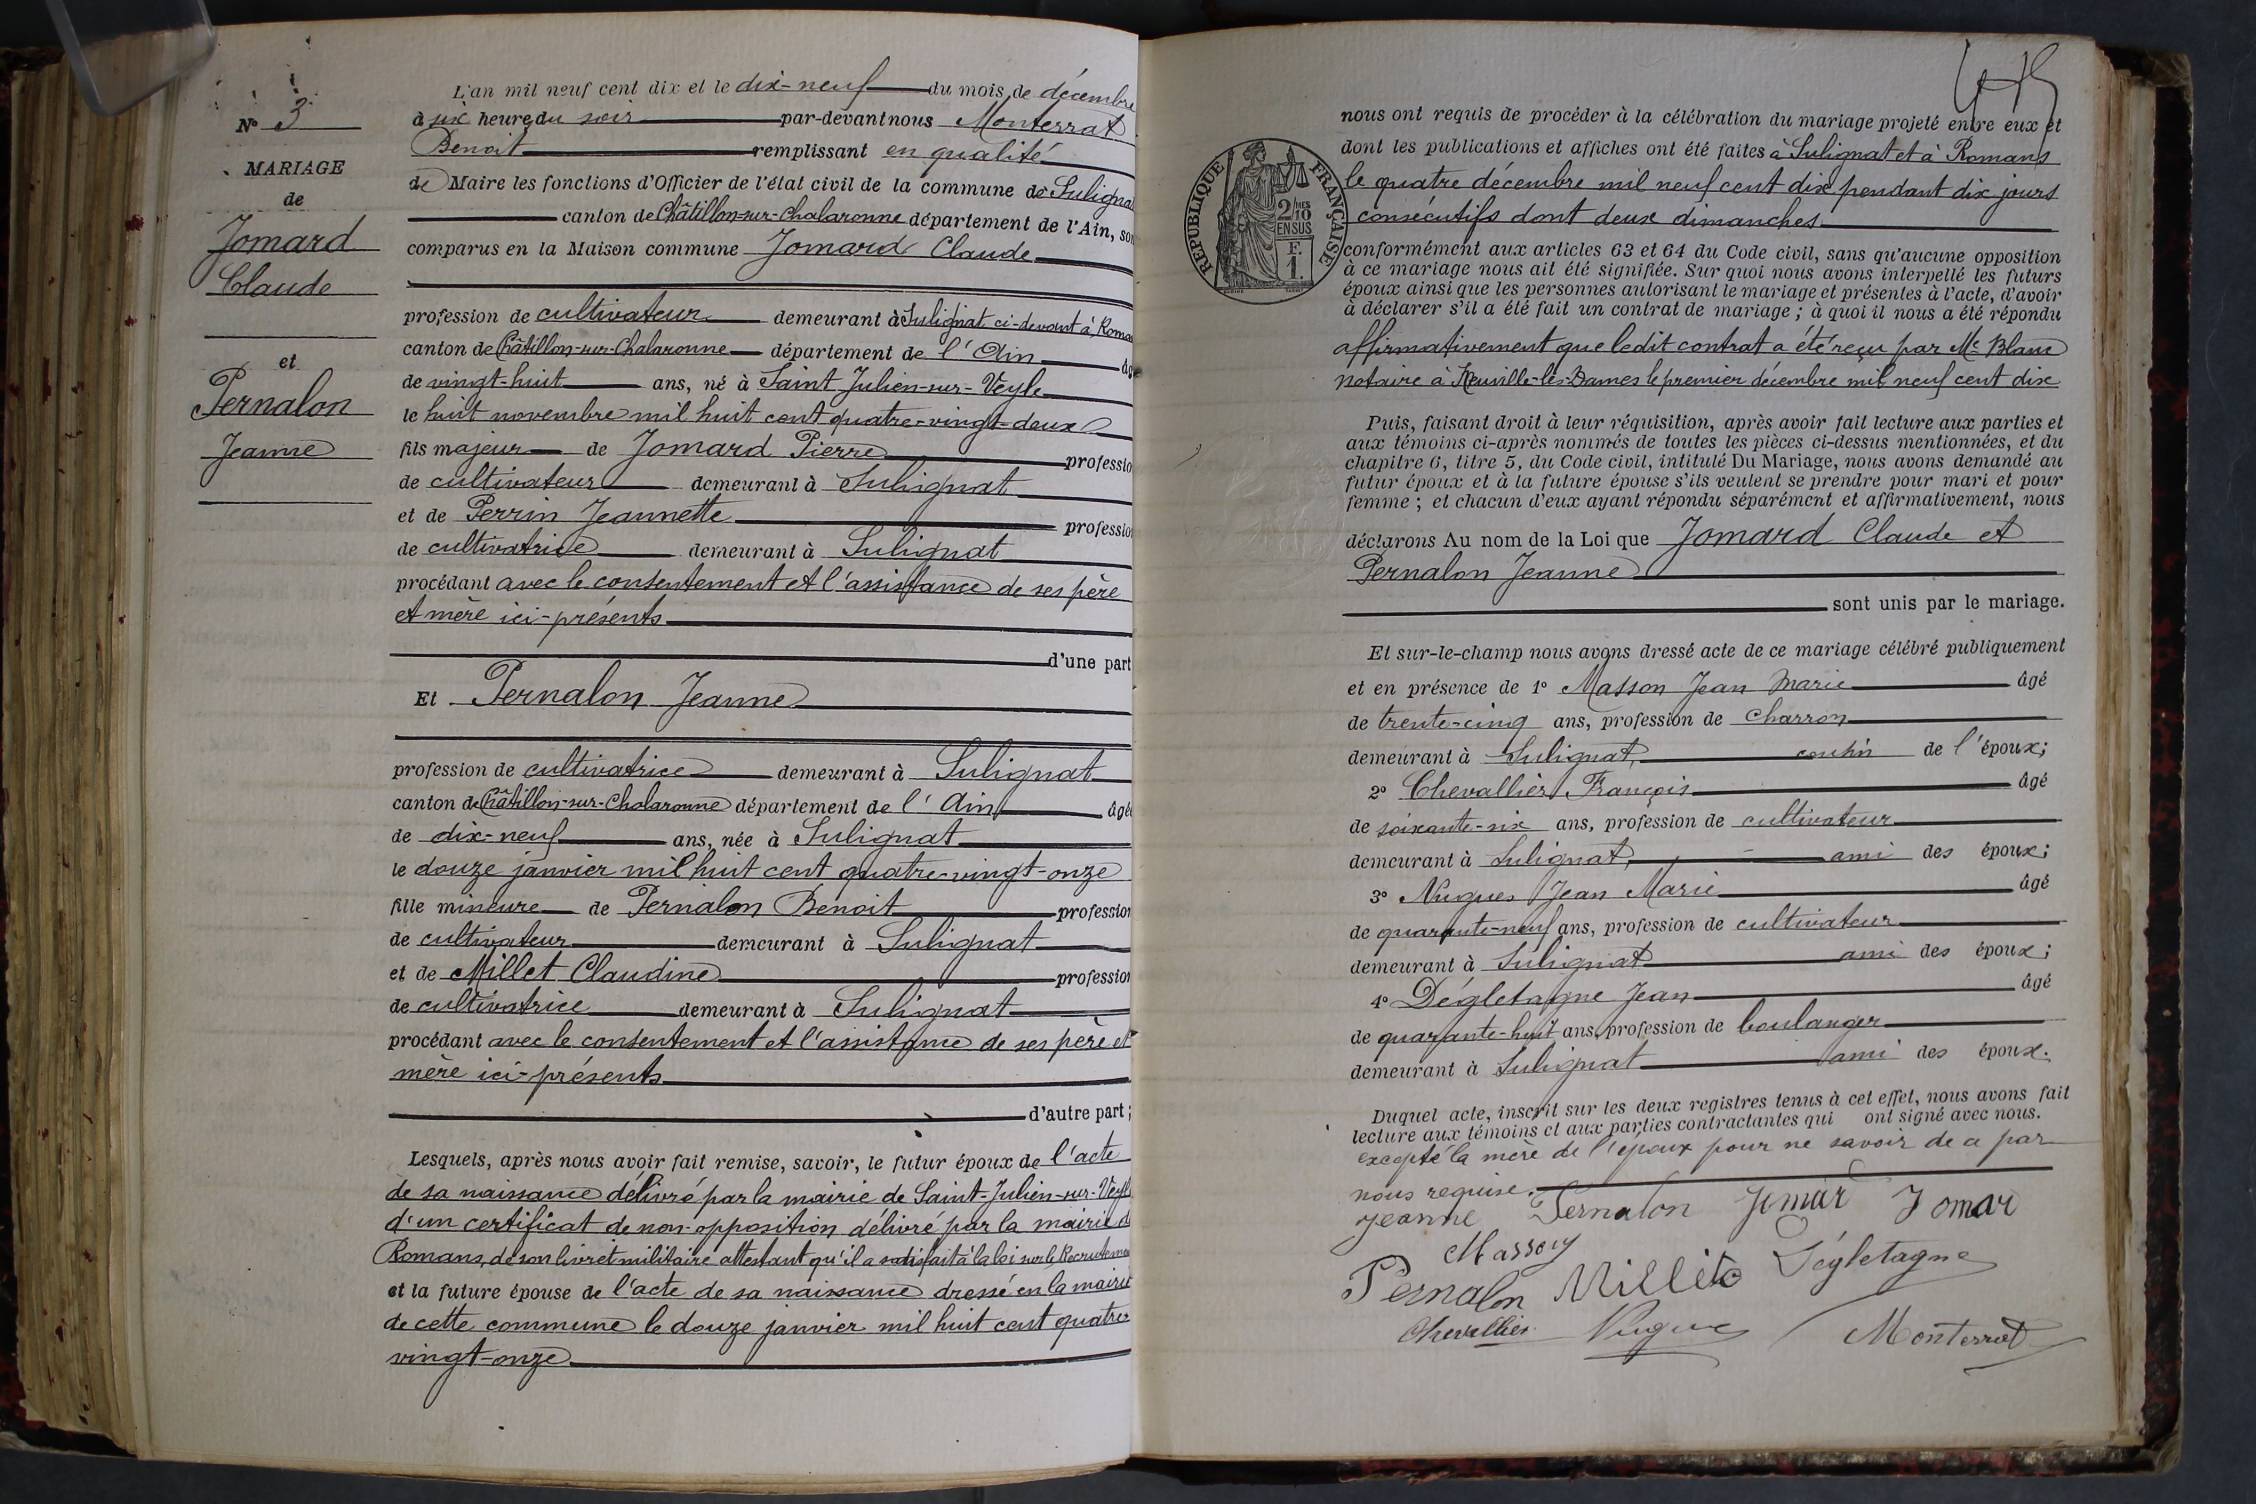 N° 3
MARIAGE
de
Jomard
Claude
et
Pernalon
Jeanne
L'an mil neuf cent dix et le dix-neuf du mois de décembre
à six heures du soir par-devant nous Monterrat
Benoit remplissant en qualité
de Maire les fonctions d'Officier de l'état civil de la commune de Sulignat
canton de Châtillon-sur-Chalaronne département de l'Ain, son
comparus en la Maison commune Jomard Claude
profession de cultivateur demeurant à Sulignat ci-devant à Romans
canton de Châtillon-sur-Chalaronne département de l'Ain âg
de vingt-huit ans, né à Saint Julien-sur-Veyle
le huit novembre mil huit cent quatre-vingt-deux
fils majeur de Jomard Pierre profession
de cultivateur demeurant à Sulignat
et de Perrin Jeannette profession
de cultivatrice demeurant à Sulignat
procédant avec le consentement et l'assistance de ses père
et mère ici-présents
d'une part
Et Pernalon Jeanne
profession de cultivatrice demeurant à Sulignat
canton de Châtillon-sur-Chalaronne département de l'Ain âgée
de dix-neuf ans, née à Sulignat
le douze janvier mil huit cent quatre-vingt-onze
fille mineure de Pernalon Benoit profession
de cultivateur demeurant à Sulignat
et de Millet Claudine profession
de cultivatrice demeurant à Sulignat
procédant avec le consentement et l'assistance de ses père et
mère ici-présents
d'autre part ;
Lesquels, après nous avoir fait remise, savoir, le futur époux de l'acte
de sa naissance délivré par la mairie de Saint-Julien-sur-Veyle
d'un certificat de non-opposition délivré par la mairie d
Romans, de son livret militaire attestant qu'il a satisfait à la loi sur le Recrutemen
et la future épouse de l'acte de sa naissance dressé en la mairie
de cette commune le douze janvier mil huit cent quatre-
vingt-onze
RÉPUBLIQUE FRANÇAISE
2/10 MES
EN SUS
F.
1.
nous ont requis de procéder à la célébration du mariage projeté entre eux et
dont les publications et affiches ont été faites à Sulignat et à Romans
le quatre décembre mil neuf cent dix pendant dix jours
consécutifs dont deux dimanches
conformément aux articles 63 et 64 du Code civil, sans qu'aucune opposition
à ce mariage nous ait été signifiée. Sur quoi nous avons interpellé les futurs
époux ainsi que les personnes autorisant le mariage et présentes à l'acte, d'avoir
à déclarer s'il a été fait un contrat de mariage ; à quoi il nous a été répondu
affirmativement que ledit contrat a été reçu par Me Blanc
notaire à Neuville-les-Dames le premier décembre mil neuf cent dix
Puis, faisant droit à leur réquisition, après avoir fait lecture aux parties et
aux témoins ci-après nommés de toutes les pièces ci-dessus mentionnées, et du
chapitre 6, titre 5, du Code civil, intitulé Du Mariage, nous avons demandé au
futur époux et à la future épouse s'ils veulent se prendre pour mari et pour
femme ; et chacun d'eux ayant répondu séparément et affirmativement, nous
déclarons Au nom de la Loi que Jomard Claude et
Pernalon Jeanne
sont unis par le mariage.
Et sur-le-champ nous avons dressé acte de ce mariage célébré publiquement
et en présence de 1° Masson Jean Marie âgé
de trente-cinq ans, profession de charron
demeurant à Sulignat, cousin de l'époux ;
2° Chevallier François âgé
de soixante-six ans, profession de cultivateur
demeurant à Sulignat, ami des époux ;
3° Nugues Jean Marie âgé
de quarante-neuf ans, profession de cultivateur
demeurant à Sulignat ami des époux ;
4° Dégletagne Jean âgé
de quarante-huit ans, profession de boulanger
demeurant à Sulignat ami des époux.
Duquel acte, inscrit sur les deux registres tenus à cet effet, nous avons fait
lecture aux témoins et aux parties contractantes qui ont signé avec nous.
excepté la mère de l'époux pour ne savoir de a par
nous requise.
Jeanne Pernalon Jomard Jomar
Masson
Pernalon Millet Dégletagne
Chevallier Nugue Monterrat